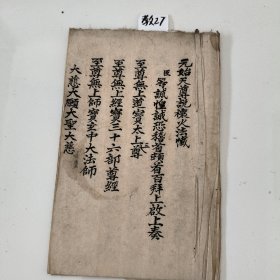 教27
元始天尊説禳火法懺
臣等誠惶誠恐稽首頓首百拜上啟上奏
至尊無上道寶太上尊
至尊無上經寶三十六部尊經
至尊無上師寶玄中大法師
大慈大願大聖大慈